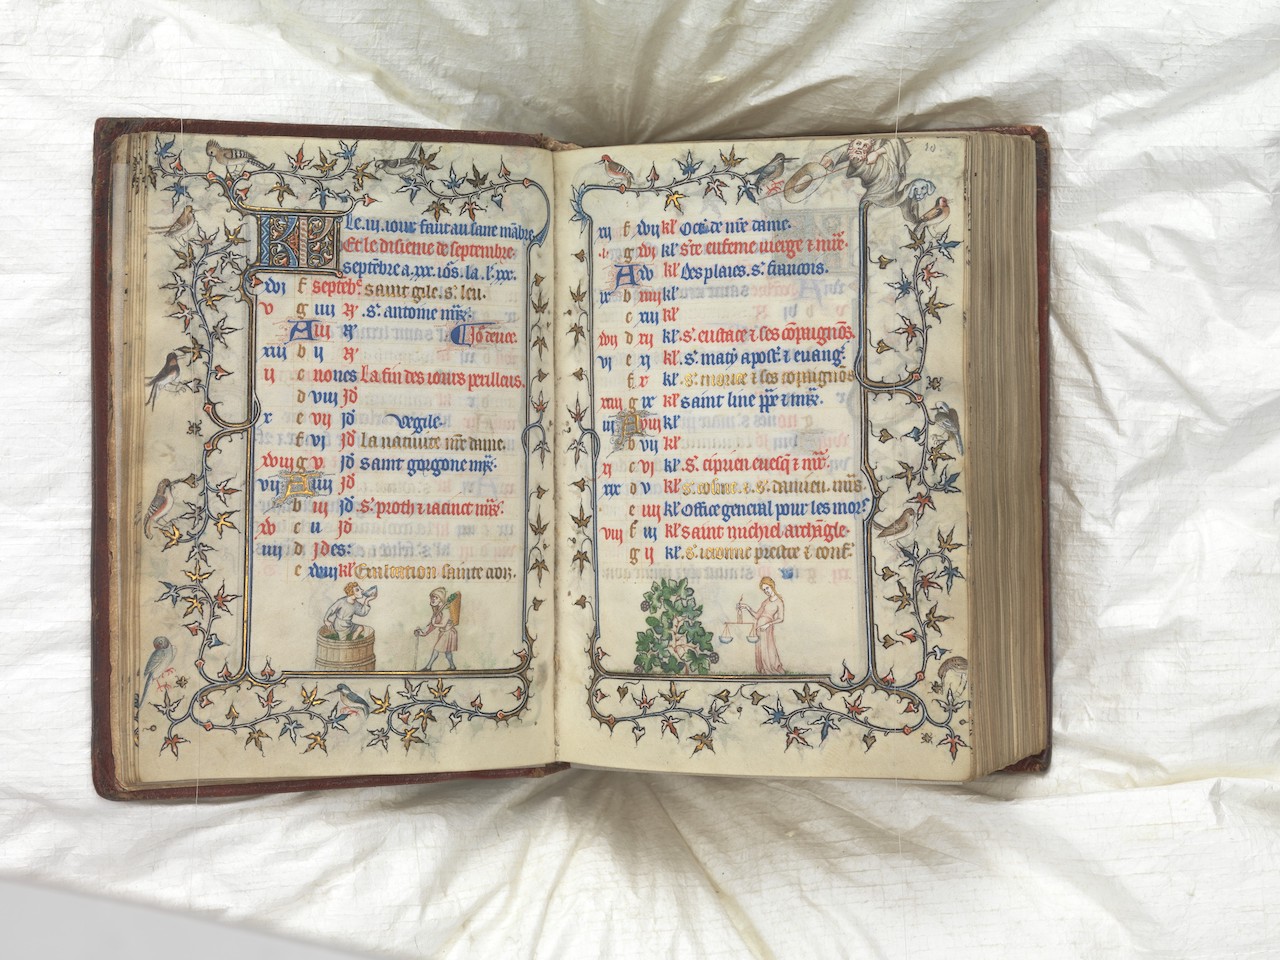 Le .iii. iour
Et le disieme de septembre.
septembre a .xxx. iors. la. l. xxx.
xvi f septeb' saint gile. s. leu.
v g iiii N' .s' antoine mr̄.
A iii N'
xiii b ii N'
ii c nones la fin des iours perilleus.
d viii Jd'
x e vii Jd' Vegile.
f vi Jd' la natiuite nr̄e dame.
xviii g v Jd' saint gorgone mr̄.
vii A iiii Jd'
b iii Jd' s' proth z iacinct mr̄s.
xv c ii Jd'
iiii d Jdes:
e xviii kl' Exaltation sainte croiz.
10
xii f xvii kl' Oct' de nr̄e dame.
i g xvi kl' s'te eufeme uierge z mr̄e.
A xv kl' Des plaies. s' francois.
ix b xiiii kl'
c xiii kl'
xvii d xii kl' s. eustace z ses cōpaignōs
vi e xi kl' s. mathʼ apost' z euang'
f x kl' s. morise z ses cōpaignōs
xiiii g ix kl' saint line pp̄e z mr̄.
iii A viii kl'
b vii kl'
xi c vi kl' s'. ciprien euesq' z mr̄.
xix d v kl' s'. cosme. z. s'. damien. mr̄s.
e iiii kl' Office general pour les mors'
viii f iii kl' saint michiel archāgle.
g ii kl' s'. ierome prestre z conf'.